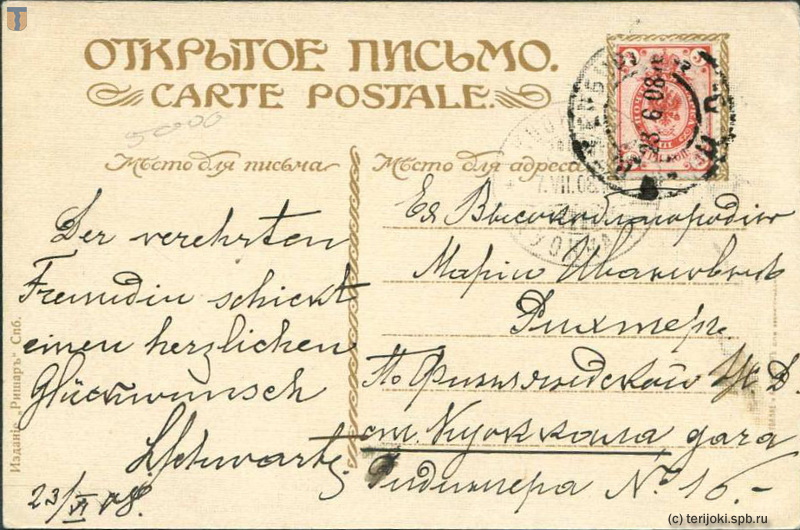 ОТКРЫТОЕ ПИСЬМО.
CARTE POSTALE.
5000
Мѣсто для письма
Мѣсто для адреса
23 6 08
7.VII.08
Der verehrten
Freundin schickt
einen herzlichen
Glückwunsch
LSchwartz.
23/VI 08.
Ея Высокоблагородію
Маріи Ивановнѣ
Рихтеръ.
По Финляндской Ж. Д.
ст. Куоккала дача
Ридингера № 16.-
Изданіе „Ришаръ“ Спб.
(c) terijoki.spb.ru